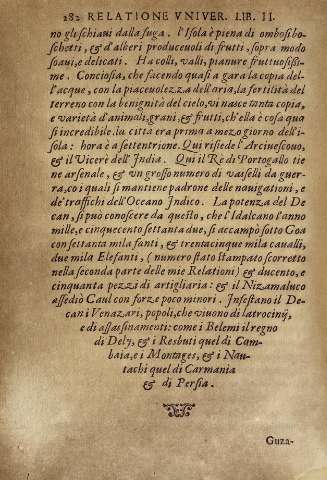 282 RELATIONE VNIVER. LIB. II.
no gli schiaui dalla fuga. l'Isola è piena di ombosi bo-
schetti, & d'alberi produceuoli di frutti, sopra modo
soaui, e delicati. Ha colli, valli, pianure fruttuosissi-
me. Conciosia, che facendo quasi a gara la copia del-
l'acque, con la piaceuolezza dell'aria, la fertilità del
terreno con la benignità del cielo, vi nasce tanta copia,
e varietà d'animali, grani, & frutti, ch'ella è cosa qua
si incredibile. la città era prima a mezo giorno dell'i-
sola: hora è a settentrione. Qui risiede l'Arciuescouo,
& il Vicerè dell'India. Qui il Re di Portogallo tie
ne arsenale, & vn grosso numero di vaselli da guer-
ra, co i quali si mantiene padrone delle nauigationi, e
de' traffichi dell'Oceano Indico. La potenza del De
can, si può conoscere da questo, che l'Idalcano l'anno
mille, e cinquecento settanta due, si accampò sotto Goa
con settanta mila fanti, & trentacinque mila caualli,
due mila Elefanti, (numero stato stampato scorretto
nella seconda parte delle mie Relationi) & ducento, e
cinquanta pezzi di artigliaria: & il Nizamaluco
assediò Caul con forze poco minori. Infestano il De-
can i Venazari, popoli, che viuono di latrocinij,
e di assassinamenti: come i Belemi il regno
di Dely, & i Resbuti quel di Cam-
baia, e i Montages, & i Nau-
tachi quel di Carmania
& di Persia.
Guza-